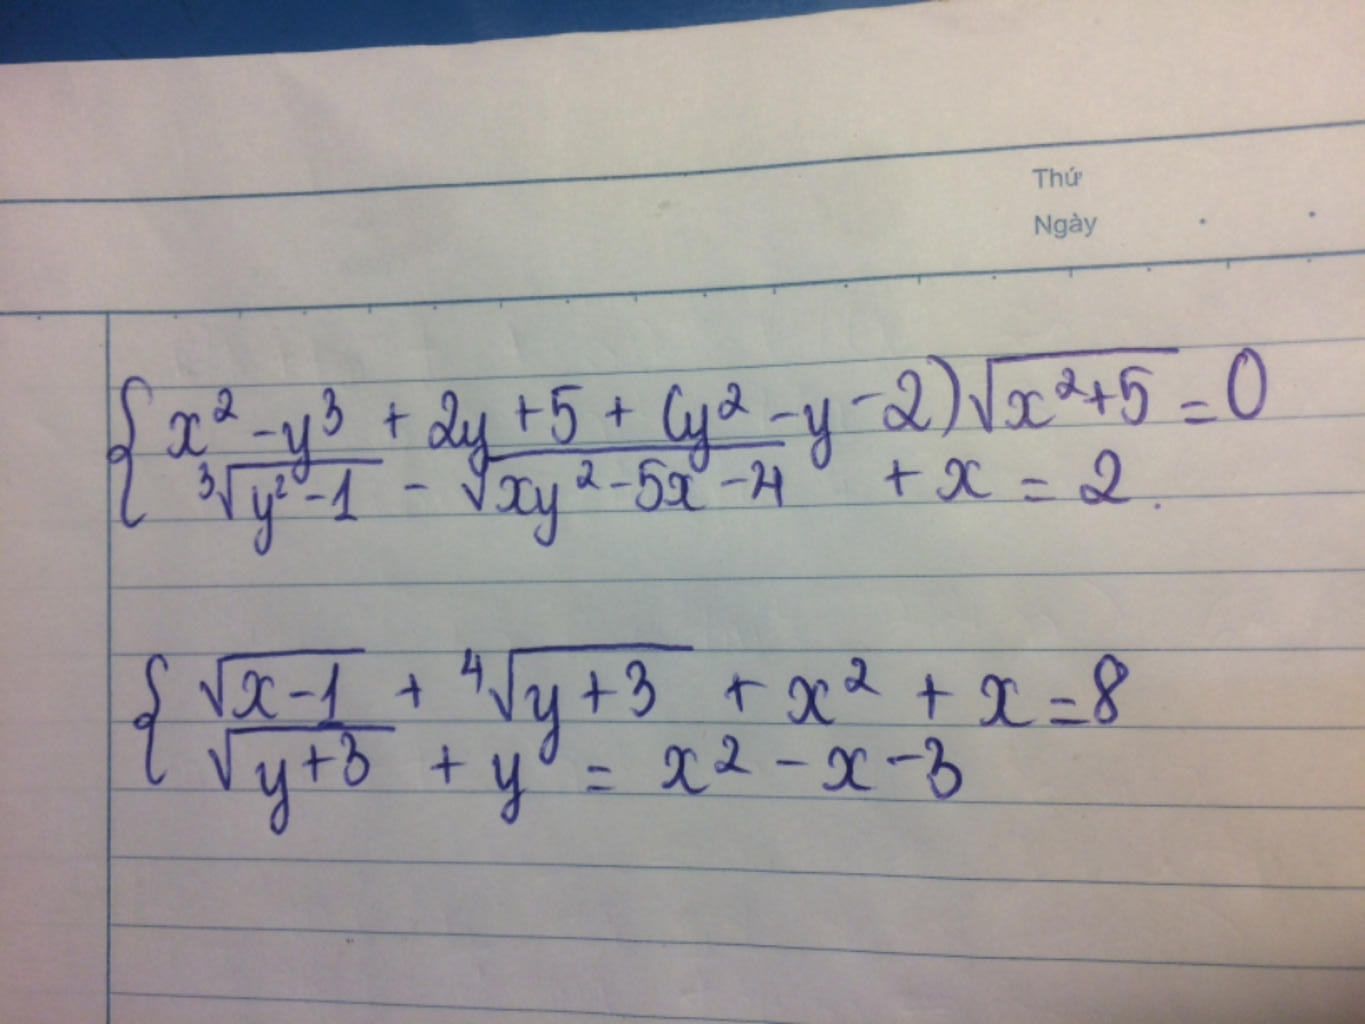 Thứ
Ngày
{ x² - y³ + 2y + 5 + (y² - y - 2)√(x² + 5) = 0
∛(y² - 1) - √(xy² - 5x - 4) + x = 2.
{ √(x - 1) + ∜(y + 3) + x² + x = 8
√(y + 3) + y = x² - x - 3